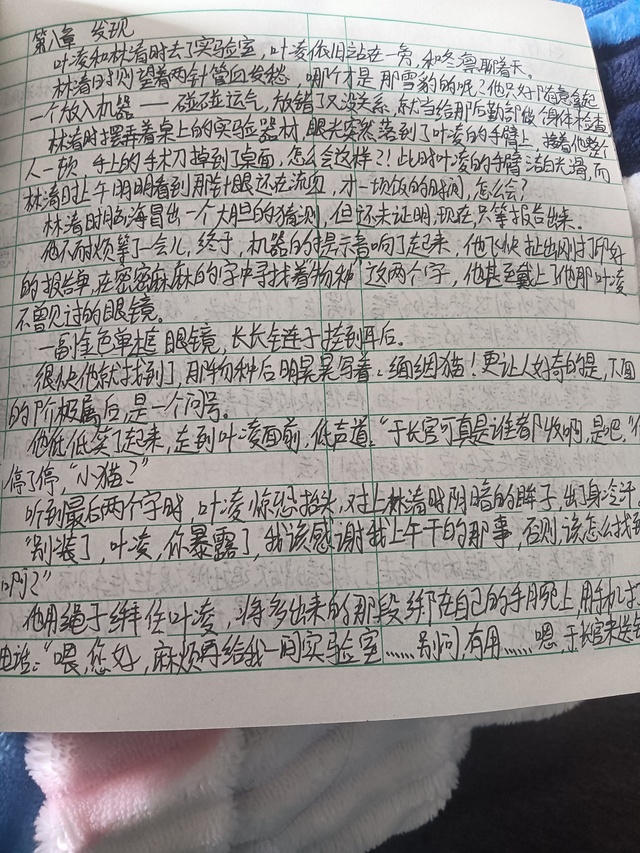 第八章 发现
叶凌和林渚时去了实验室，叶凌依旧站在一旁，和冬凛聊着天。
林渚时则望着两针管血发愁 哪个才是那雪豹的呢？他只好随意拿起
一个放入机器——碰碰运气，放错了又没关系，就当给那后勤部做个身体检查
林渚时摆弄着桌上的实验器材，眼光突然落到了叶凌的手臂上，接着他整个
人一顿 手上的手术刀掉到了桌面，怎么会这样？！此时叶凌的手臂洁白光滑，而
林渚时上午明明看到那针眼还在流血，才一顿饭的时间，怎么会？
林渚时脑海冒出一个大胆的猜测，但还未证明，现在，只等报告出来。
他不耐烦等了一会儿，终于，机器的提示音响了起来，他飞快扯出刚打印好
的报告单，在密密麻麻的字中寻找着"物种"这两个字，他甚至戴上了他那叶凌
不曾见过的眼镜。
一副金色单框眼镜，长长链子挂到耳后。
很快他就找到了，那物种后明晃晃写着：缅缅猫！更让人好奇的是，下面
的阶极属后，是一个问号。
他低低笑了起来，走到叶凌面前，低声道："于长官可真是谁都收啊，是吧，"他
停了停，"小猫？"
听到最后两个字时，叶凌惊恐抬头，对上林渚时阴暗的眸子，出了身冷汗
"别装了，叶凌，你暴露了，我该感谢我上午干的那事，否则，该怎么找到
啊？"
他用绳子绑住叶凌，将多出来的那段绑在自己的手腕上，用手机打
电话："喂，您好，麻烦再给我一间实验室……别问，有用……嗯，于长官来送